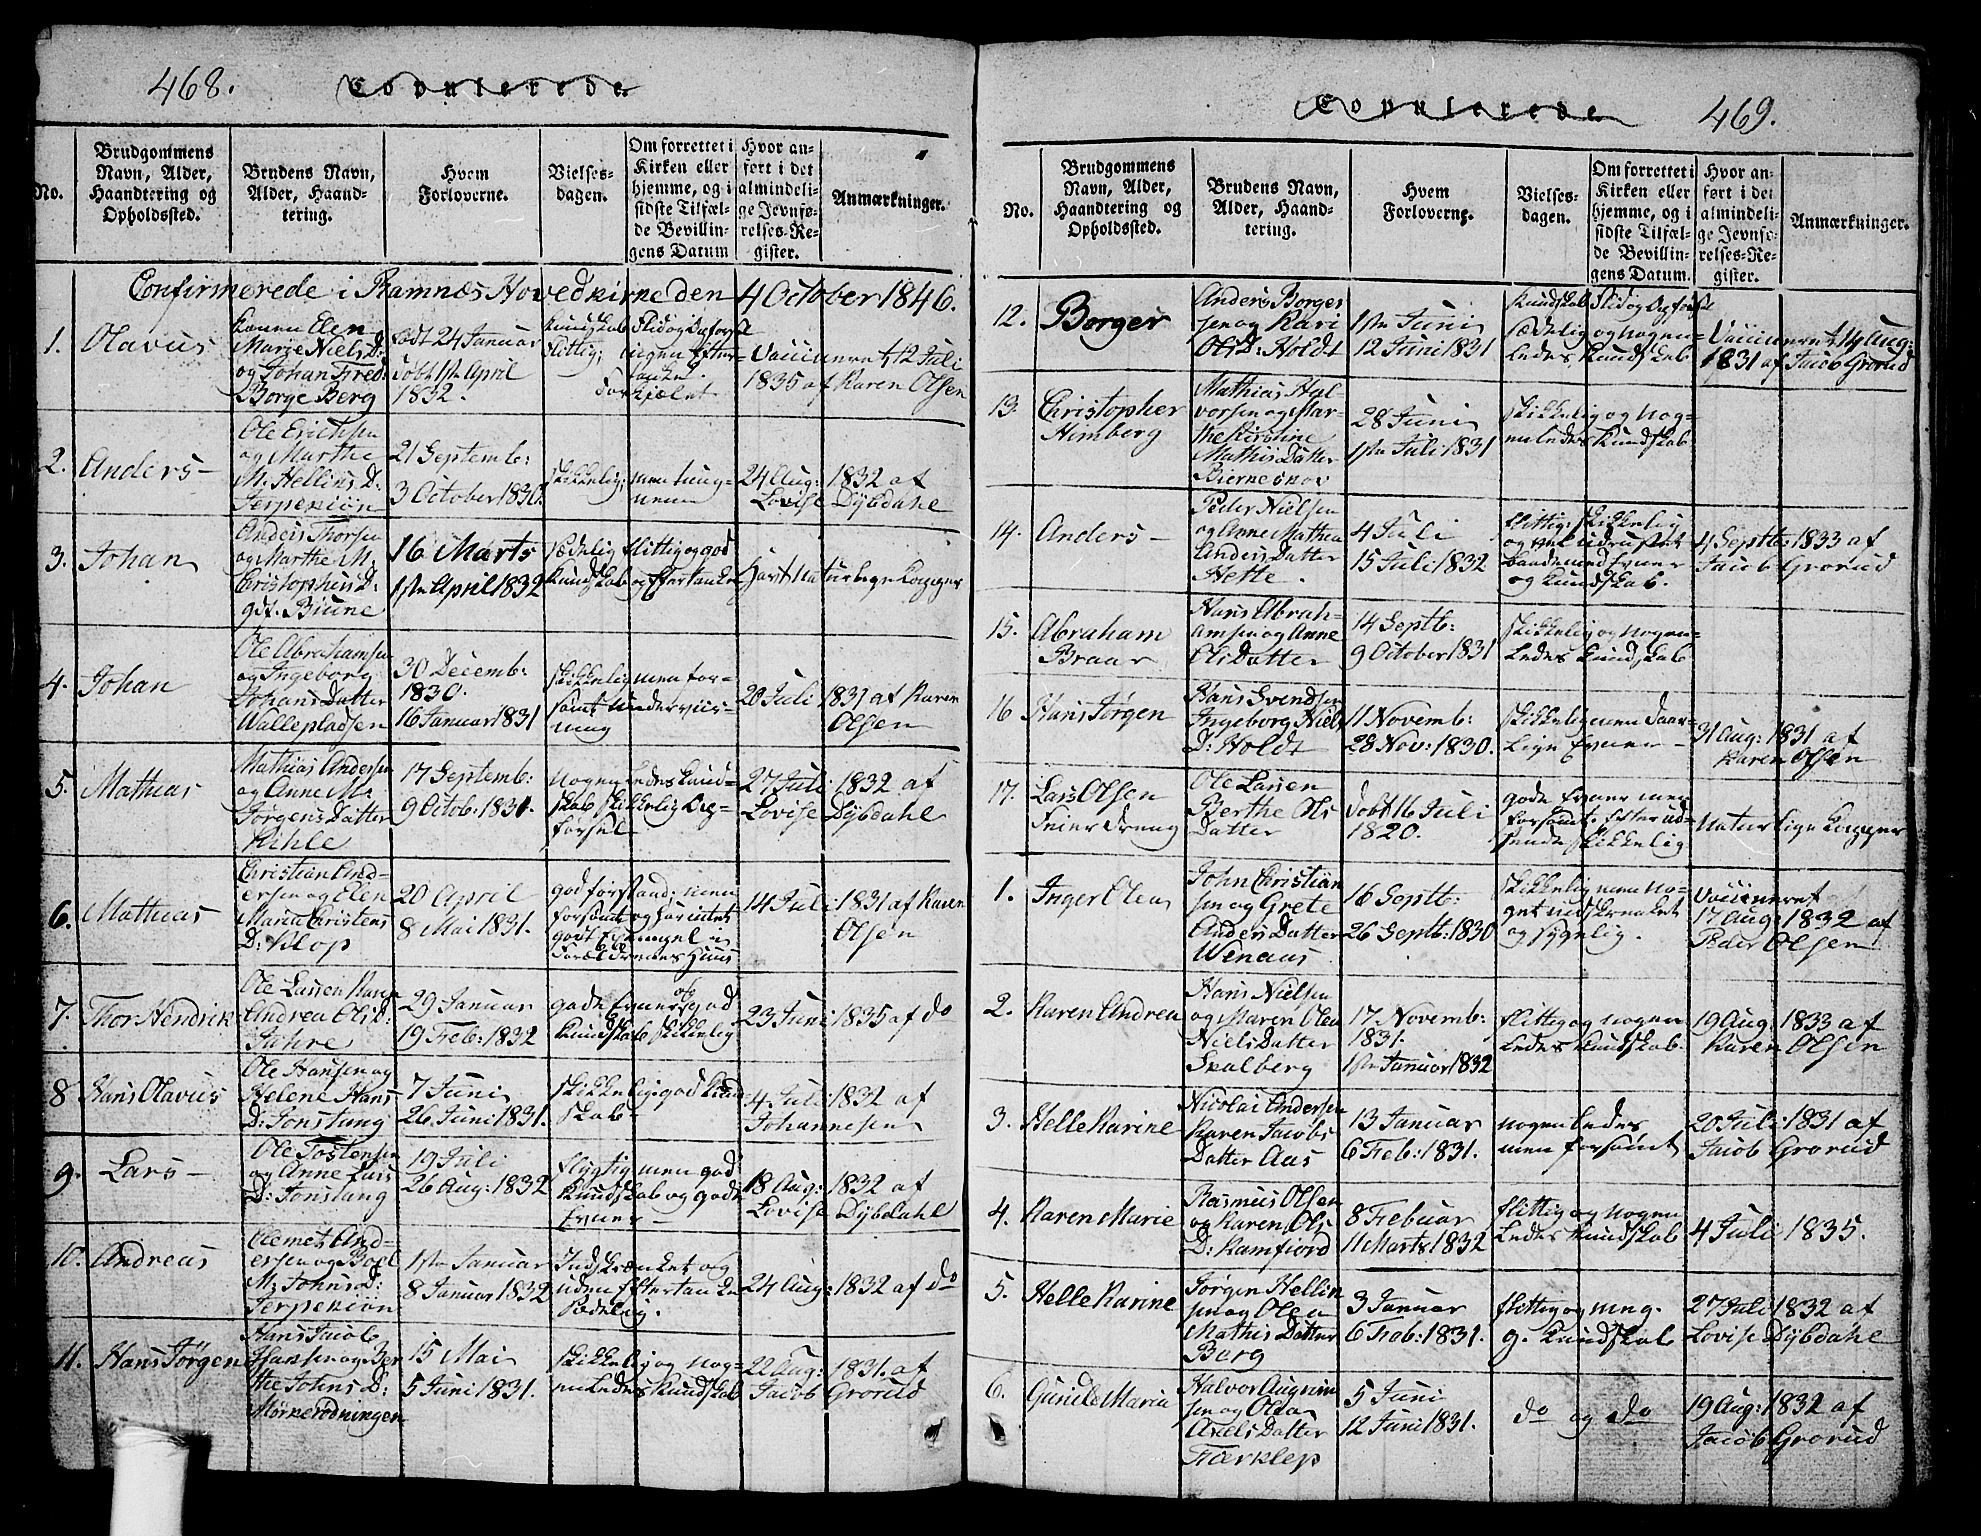 468.
Copulerede.
No.
Brudgommens
Navn, Alder,
Haandtering og
Opholdssted.
Brudens Navn,
Alder, Haand-
tering.
Hvem
Forloverne.
Vielses-
dagen.
Om forrettet i
Kirken eller
hjemme, og i
sidste Tilfæl-
de Bevillin-
gens Datum
Hvor an-
ført i det
almindeli-
ge Jevnfø-
relses-Re-
gister.
Anmærkninger.
Confirmerede i Ramnæs Hovedkirke den 4 October 1846.
1. Olavus
Elen
Marie Niels D:
og Johan Fred:
Borge Berg
født 24 Januar
døbt 1ste April
1832.
Kundskab Flid og Opførsel
flittig; ingen Efter-
tanke.
Vaccineret 12 Juli
1835 af Karen Olsen
2. Anders -
Ole Erichsen
og Marthe
M. Hellins D:
21 Septemb:
3 October 1830
skikkelig; men tung-
nem
24 Aug: 1832 af
Lovise Dybdahl
3. Johan
Anders Thorsen
og Marthe M.
Christophers D:
16 Marts
1ste April 1832
Sædelig flittig og god
Kundskab og Eftertanke
Havt naturlige Kopper
4. Johan
Ole Abrahamsen
og Ingeborg
Johans Datter
Wallepladsen
30 Decemb:
1830.
16 Januar 1831
skikkelig men for-
sømt Underviis-
ning
20 Juli 1831 af Karen
Olsen
5. Mathias
Mathias Andersen
og Anne M.
Jørgens Datter
Kihle
17 Septemb:
9 Octob: 1831.
nogenledes Kund-
skab skikkelig Op-
førsel
27 Juli 1832 af
Lovise Dybdahl
6. Mathias
Christian And-
ersen og Elen
Maria Christens
D: Klop
20 April
8 Mai 1831.
god forstand; men
forsømt og
14 Juli 1831 af Karen
Olsen
7. Thor Hendrik
Ole Larsen Karen
Andrea Olis D:
29 Januar
19 Feb: 1832
gode Evner og god
Kundskab skikkelig
23 Juni 1835 af do
8 Hans Olavus
Ole Hansen og
Helene Hans
D: Tonstang
7 Juni
26 Juni 1831.
skikkelig: god Kund
skab
4 Juli 1832 af
Johannesen
9. Lars -
Ole Tostensen
og Anne Lars
D: Tonstang
19 Juli
26 Aug: 1832
flygtig men god
Kundskab og gode
Evner -
18 Aug: 1832 af
Lovise Dybdahl
10. Andreas
Clemet And-
ersen og Boel
M. Johns D:
1ste Januar
8 Januar 1832
Indskrænket og
uden Eftertanke
Sædelig.
24 Aug: 1832 af do
11. Hans Jørgen
Hans Jacob
Hansen og Ber
the Johns D:
15 Mai
5 Juni 1831.
skikkelig og nog-
enledes Kundskab
22 Aug: 1831. af
Jacob Grorud
Copulerede. 469.
No.
Brudgommens
Navn, Alder,
Haandtering og
Opholdssted.
Brudens Navn,
Alder, Haand-
tering.
Hvem
Forloverne.
Vielses-
dagen.
Om forrettet i
Kirken eller
hjemme, og i
sidste Tilfæl-
de Bevillin-
gens Datum.
Hvor an-
ført i det
almindeli-
ge Jevnfø-
relses-Re-
gister.
Anmærkninger.
12. Borger
Anders Borger
sen og Kari
Olis D: Holdt
1ste Juni
12 Juni 1831
Kundskab Flid og Opførsel
sædelig og nogen-
ledes Kundskab
Vaccineret 14 Aug:
1831 af Jacob Grorud
13. Christopher
Himberg
Mathias Hal-
vorsen og Mar-
the Kirstine
Mathis Datter
28 Juni
1ste Juli 1831
skikkelig og nog-
enledes Kundskab
14. Anders -
Peder Nielsen
og Anne Mathea
Anders Datter
Hette.
4 Juli
15 Juli 1832
flittig: skikkelig
og vel udrustet
baade med Evner
og Kundskab.
4 Septb: 1833 af
Jacob Grorud
15. Abraham
Braar
Hans Abrah-
amsen og Anne
Olis Datter
14 Septb:
9 October 1831
skikkelig og nogen-
ledes Kundskab
16 Hans Jørgen
Hans Svendsen
Ingeborg Niels
D: Holdt
11 Novemb:
28 Nov: 1830.
skikkelig men daar-
lige Evner -
31 Aug: 1831 af
Karen Olsen
17. Lars Olsen
Feier dreng
Ole Larsen
Berthe Ols
Datter
døbt 16 Juli
1820.
gode Evner men
forsømt. Efter ud-
seende skikkelig
Naturlige Kopper
1. Inger Olea
John Christian
sen og Grete
Anders Datter
Wenaas
16 Septb:
26 Septb: 1830
skikkelig men no-
get indskrænket
og sygelig.
Vaccineret
17 Aug: 1832 af
Peder Olsen
2. Karen Andrea
Hans Nielsen
og Maren Olea
Niels Datter
Skalberg
17 Novemb:
1831.
1ste Januar 1832
flittig og nogen
ledes Kundskab.
19 Aug: 1833 af
Karen Olsen
3. Helle Karine
Nicolai Andersen
Karen Jacobs
Datter Aas
13 Januar
6 Feb: 1831.
nogenledes
men forsømt
20 Juli 1831 af
Jacob Grorud
4. Karen Marie
Rasmus Olsen
og Karen Ols
D: Ramfjord
8 Febuar
11 Marts 1832
flittig og nogen
ledes Kundskab
4 Juli 1835.
5. Helle Karine
Jørgen Hellin
sen og Olea
Mathis Datter
Berg
3 Januar
6 Feb: 1831.
flittig og
g. Kundskab
27 Juli 1832 af
Lovise Dybdahl
6. Gunild Maria
Halvor
sen og Olea
Axels Datter
5 Juni
12 Juni 1831.
do og do
19 Aug: 1832 af
Jacob Grorud